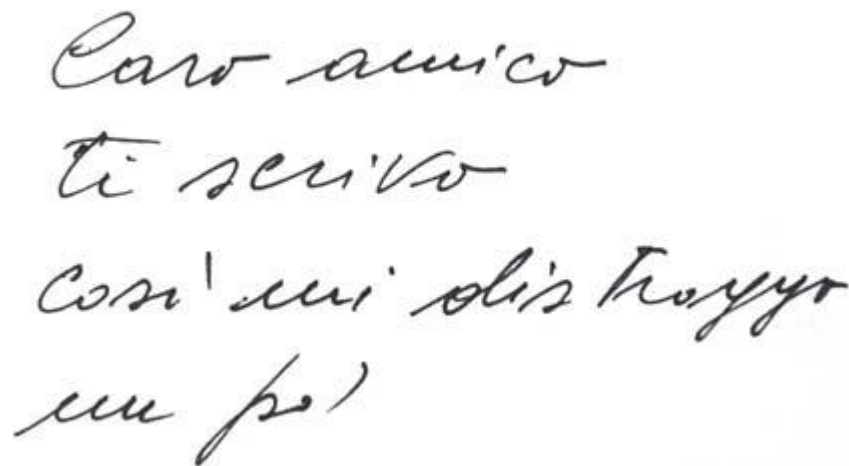 Caro amico
ti scrivo
così mi distraggo
un po'